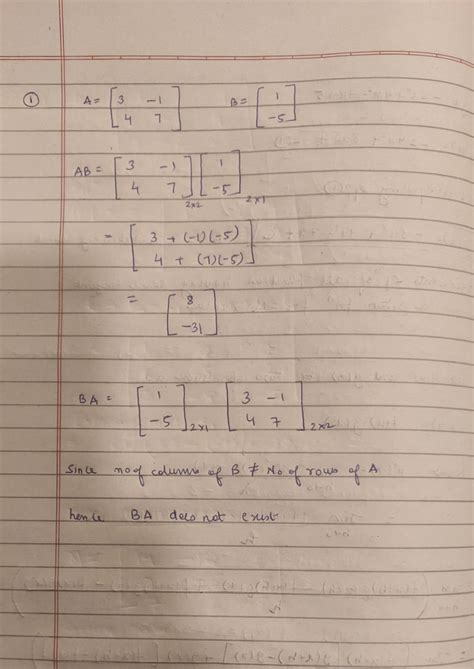 ① A = [ 3 -1 ] B = [ 1 ]
[ 4 7 ] [ -5 ]
AB = [ 3 -1 ] [ 1 ]
[ 4 7 ]2x2 [ -5 ]2x1
= [ 3 + (-1)(-5) ]
[ 4 + (7)(-5) ]
= [ 8 ]
[ -31 ]
BA = [ 1 ] [ 3 -1 ]
[ -5 ]2x1 [ 4 7 ]2x2
Since no of columns of B ≠ No of rows of A
hence BA does not exist